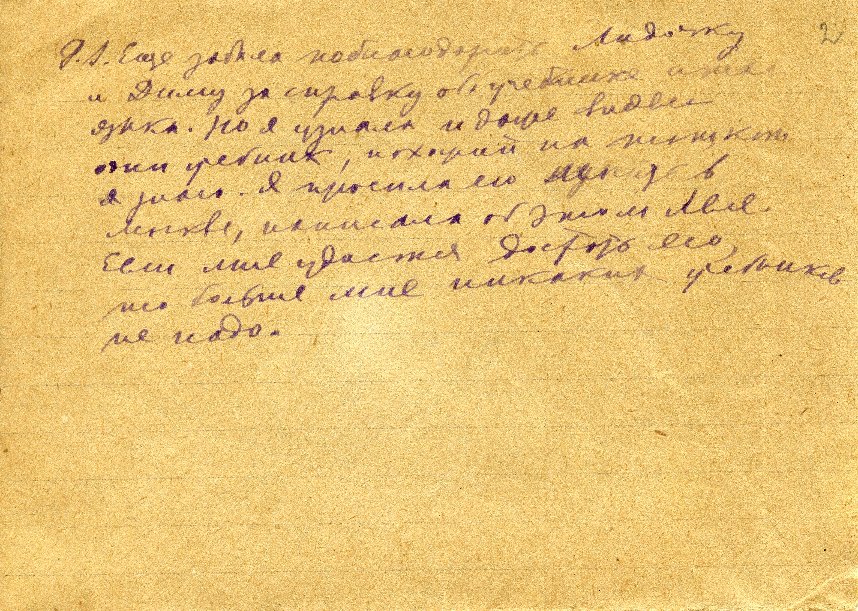 2
P.S. Еще забыла поблагодарить Лидочку
и Диму за справку об учебнике
языка. Но я узнала и даже видела
один учебник, который на
я знаю. Я просила его в
Москве, написала об этом Ляле.
Если мне удастся достать его,
то больше мне никаких учебников
не надо.